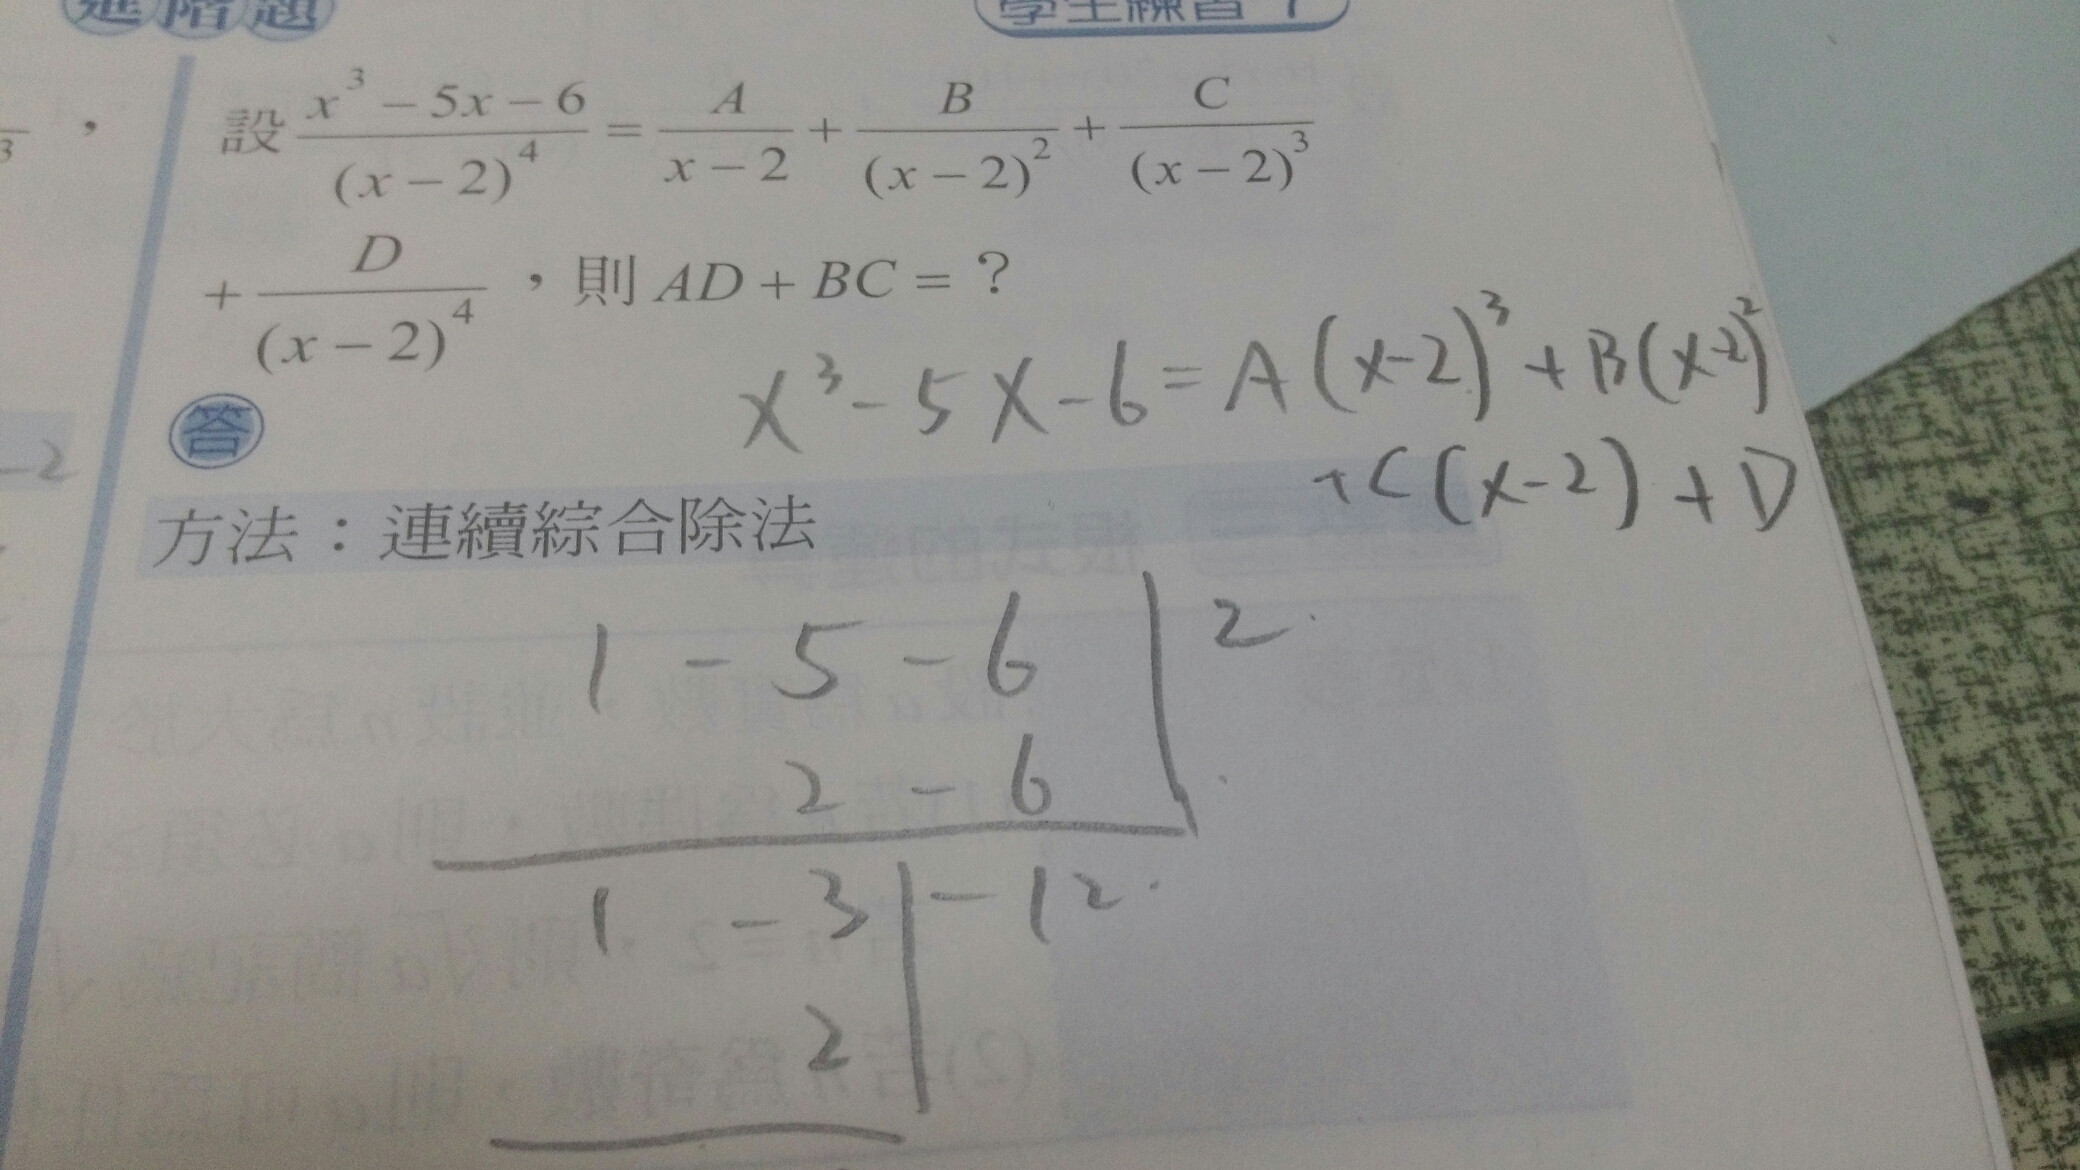 進階題
學生練習
3 ,
設 \frac{x^3-5x-6}{(x-2)^4} = \frac{A}{x-2} + \frac{B}{(x-2)^2} + \frac{C}{(x-2)^3}
+ \frac{D}{(x-2)^4} ,則 AD + BC = ?
x^3-5x-6=A(x-2)^3+B(x-2)^2
+C(x-2)+D
答
-2
方法:連續綜合除法
1 -5 -6 | 2
2 -6
1 -3 | -12
2